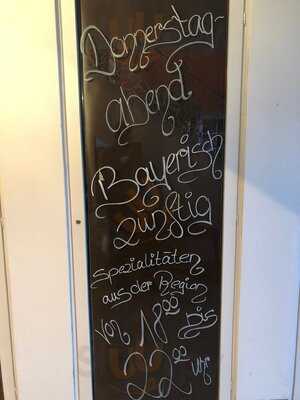 Donnerstag-
abend
Bayerisch
zünftig
Spezialitäten
aus der Region
von 18⁰⁰ bis
22⁰⁰ Uhr